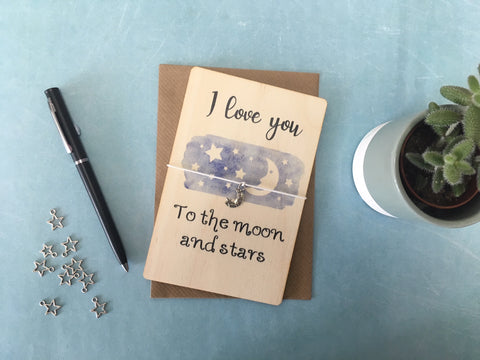 I love you
To the moon
and stars